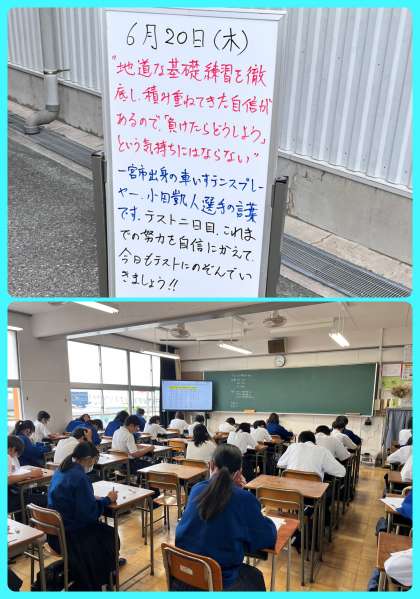 6月20日(木)
"地道な基礎練習を徹
底し、積み重ねてきた自信が
あるので、「負けたらどうしよう」
という気持ちにはならない"
一宮市出身の車いすテニスプレー
ヤー、小田凱人選手の言葉
です。テスト二日目、これま
での努力を自信にかえて、
今日もテストにのぞんでい
きましょう!!